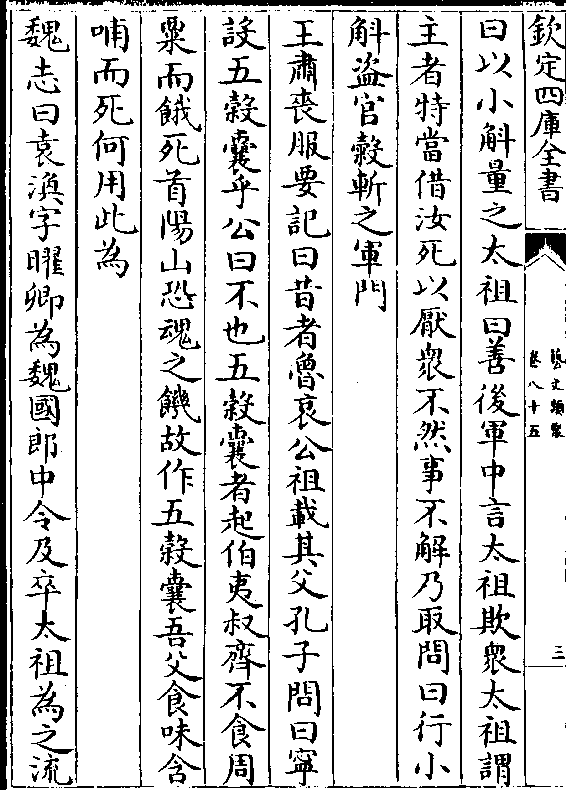 欽定四庫全書
藝文類聚
卷八十五
三
曰以小斛量之太祖曰善後軍中言太祖欺衆太祖謂
主者特當借汝死以厭衆不然事不解乃取問曰行小
斛盜官穀斬之軍門
王肅喪服要記曰昔者魯哀公祖載其父孔子問曰寧
設五穀囊乎公曰不也五穀囊者起伯夷叔齊不食周
粟而餓死首陽山恐魂之饑故作五穀囊吾父食味含
哺而死何用此為
魏志曰袁渙字曜卿為魏國郎中令及卒太祖為之流